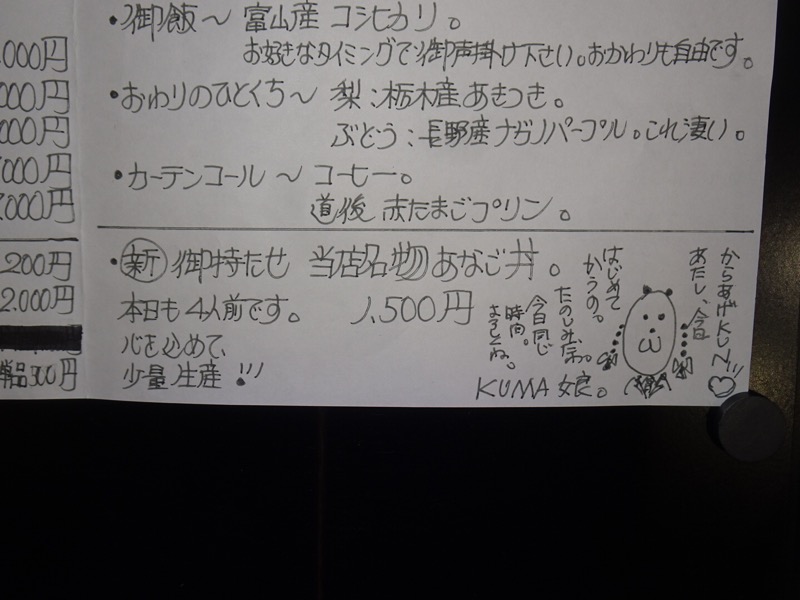 ・御飯〜 富山産 コシヒカリ。
お好きなタイミングで御声掛け下さい。おかわりも自由です。
・おわりのひとくち〜 梨:栃木産あきづき。
ぶどう:長野産ナガノパープル。これ凄い。
・カーテンコール 〜 コーヒー。
道後 赤たまごプリン。
・新 御持たせ 当店名物 あなご丼。
本日も4人前です。 1,500円
心を込めて、
少量生産!!!
からあげKUN!!♡
あたし、今日
はじめて
かうの。
たのしみだわ。
今日同じ
時間。
よろしくね。
KUMA娘。
000円
000円
000円
000円
000円
200円
2.000円
単品300円